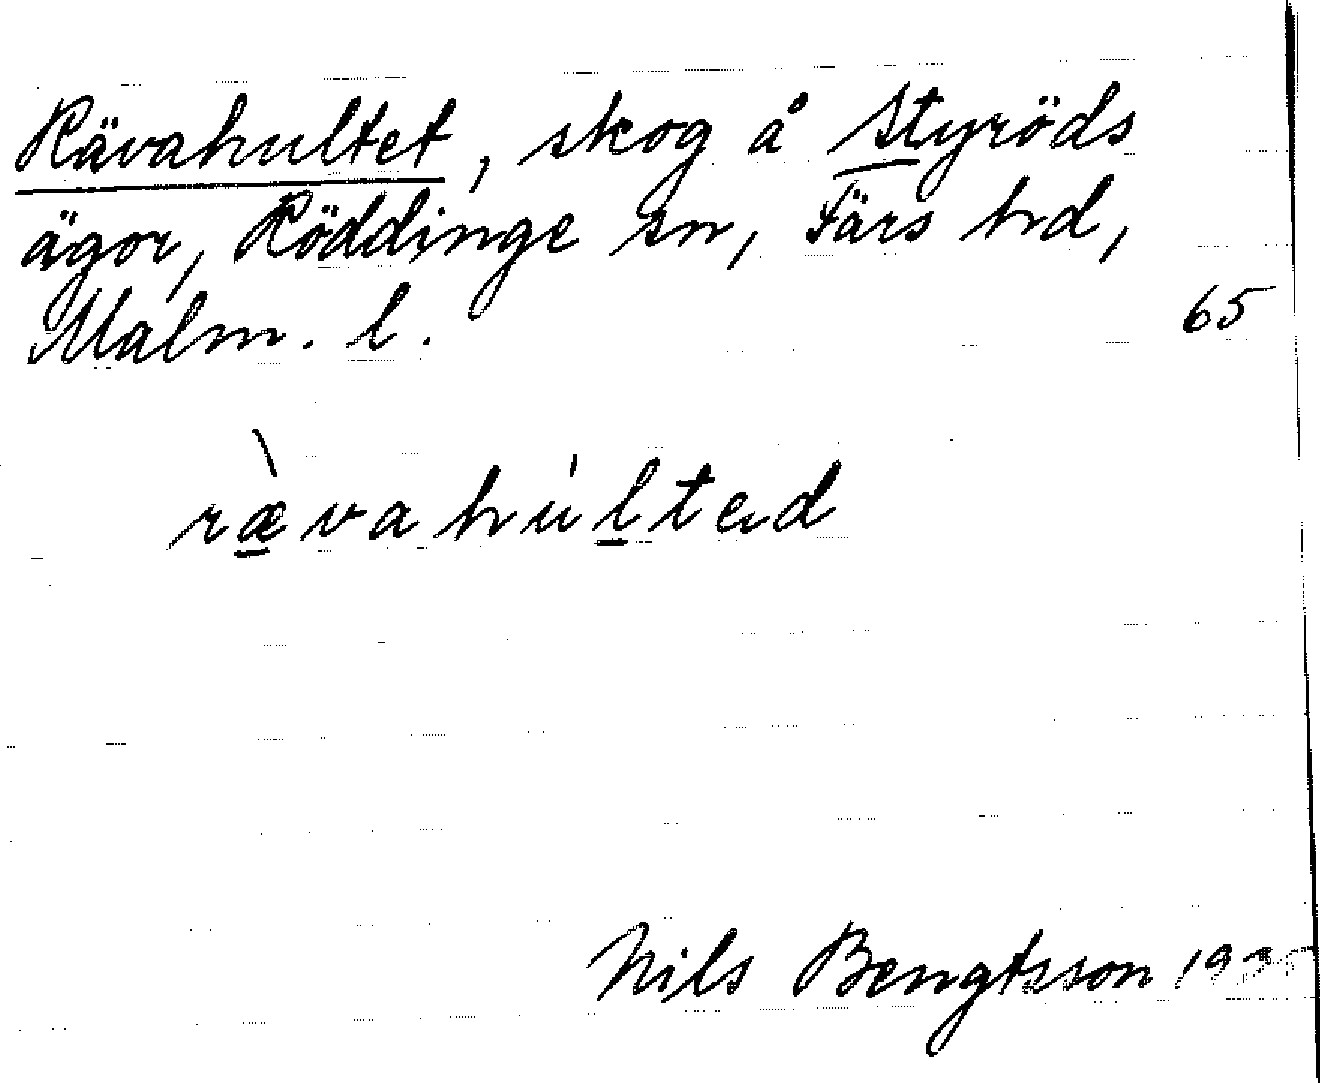 Rävahultet, skog å Styröds
ägor, Röddinge sn, Färs hd,
Malm. l.
65
rævahúltad
Nils Bengtsson